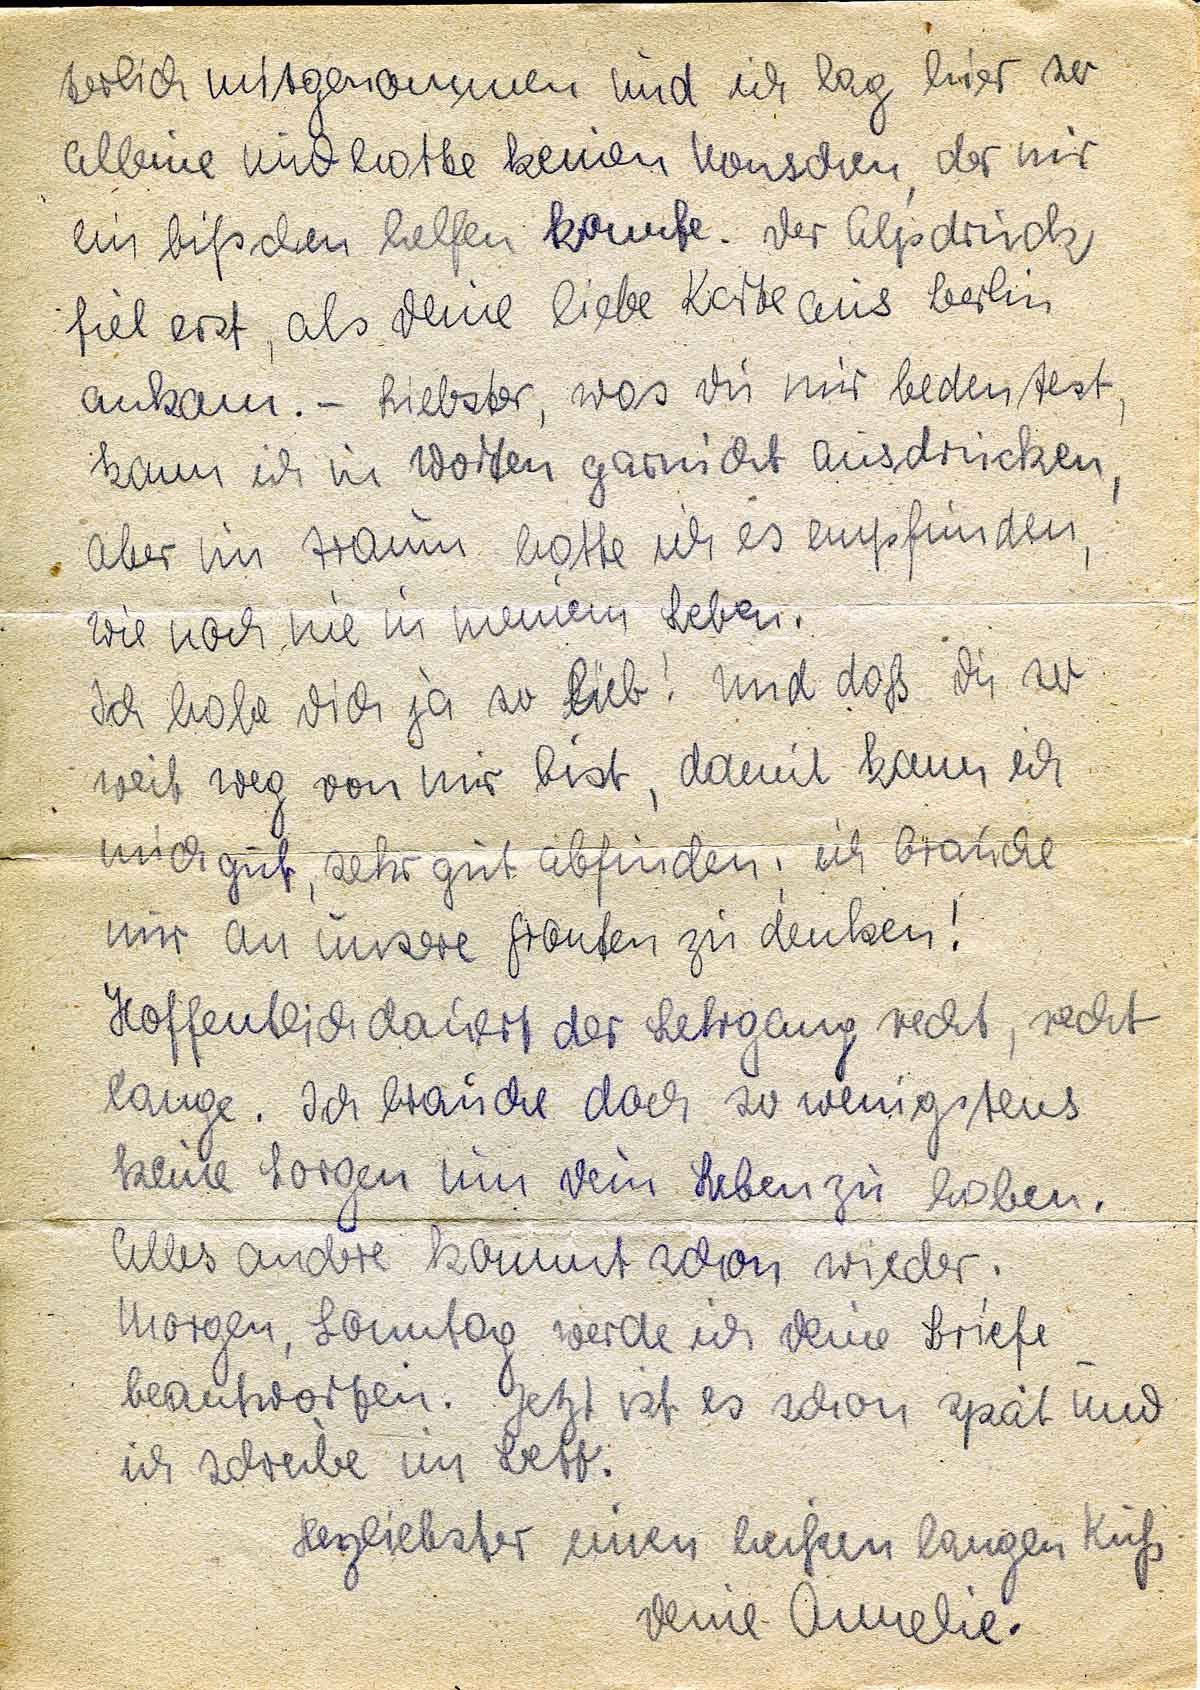 zerlich mitgenommen und ich lag hier so
alleine und hatte keinen Menschen, der mir
ein bißchen helfen konnte. Der Alpdruck
fiel erst, als Deine liebe Karte aus Berlin
ankam. – Liebster, was Du mir bedeutest,
kann ich in Worten garnicht ausdrücken,
aber im Traum hatte ich es empfunden,
wie noch nie in meinem Leben.
Ich habe Dich ja so lieb! Und daß Du so
weit weg von mir bist, damit kann ich
mich gut, sehr gut abfinden; ich brauche
nur an unsere Fronten zu denken!
Hoffentlich dauert der Lehrgang recht, recht
lange. Ich brauche doch so wenigstens
keine Sorgen um Dein Leben zu haben.
Alles andere kommt schon wieder.
Morgen, Sonntag werde ich Deine Briefe
beantworten. Jetzt ist es schon spät und
ich schreibe im Bett.
Herzliebster einen heißen langen Kuß
Deine Annelie.